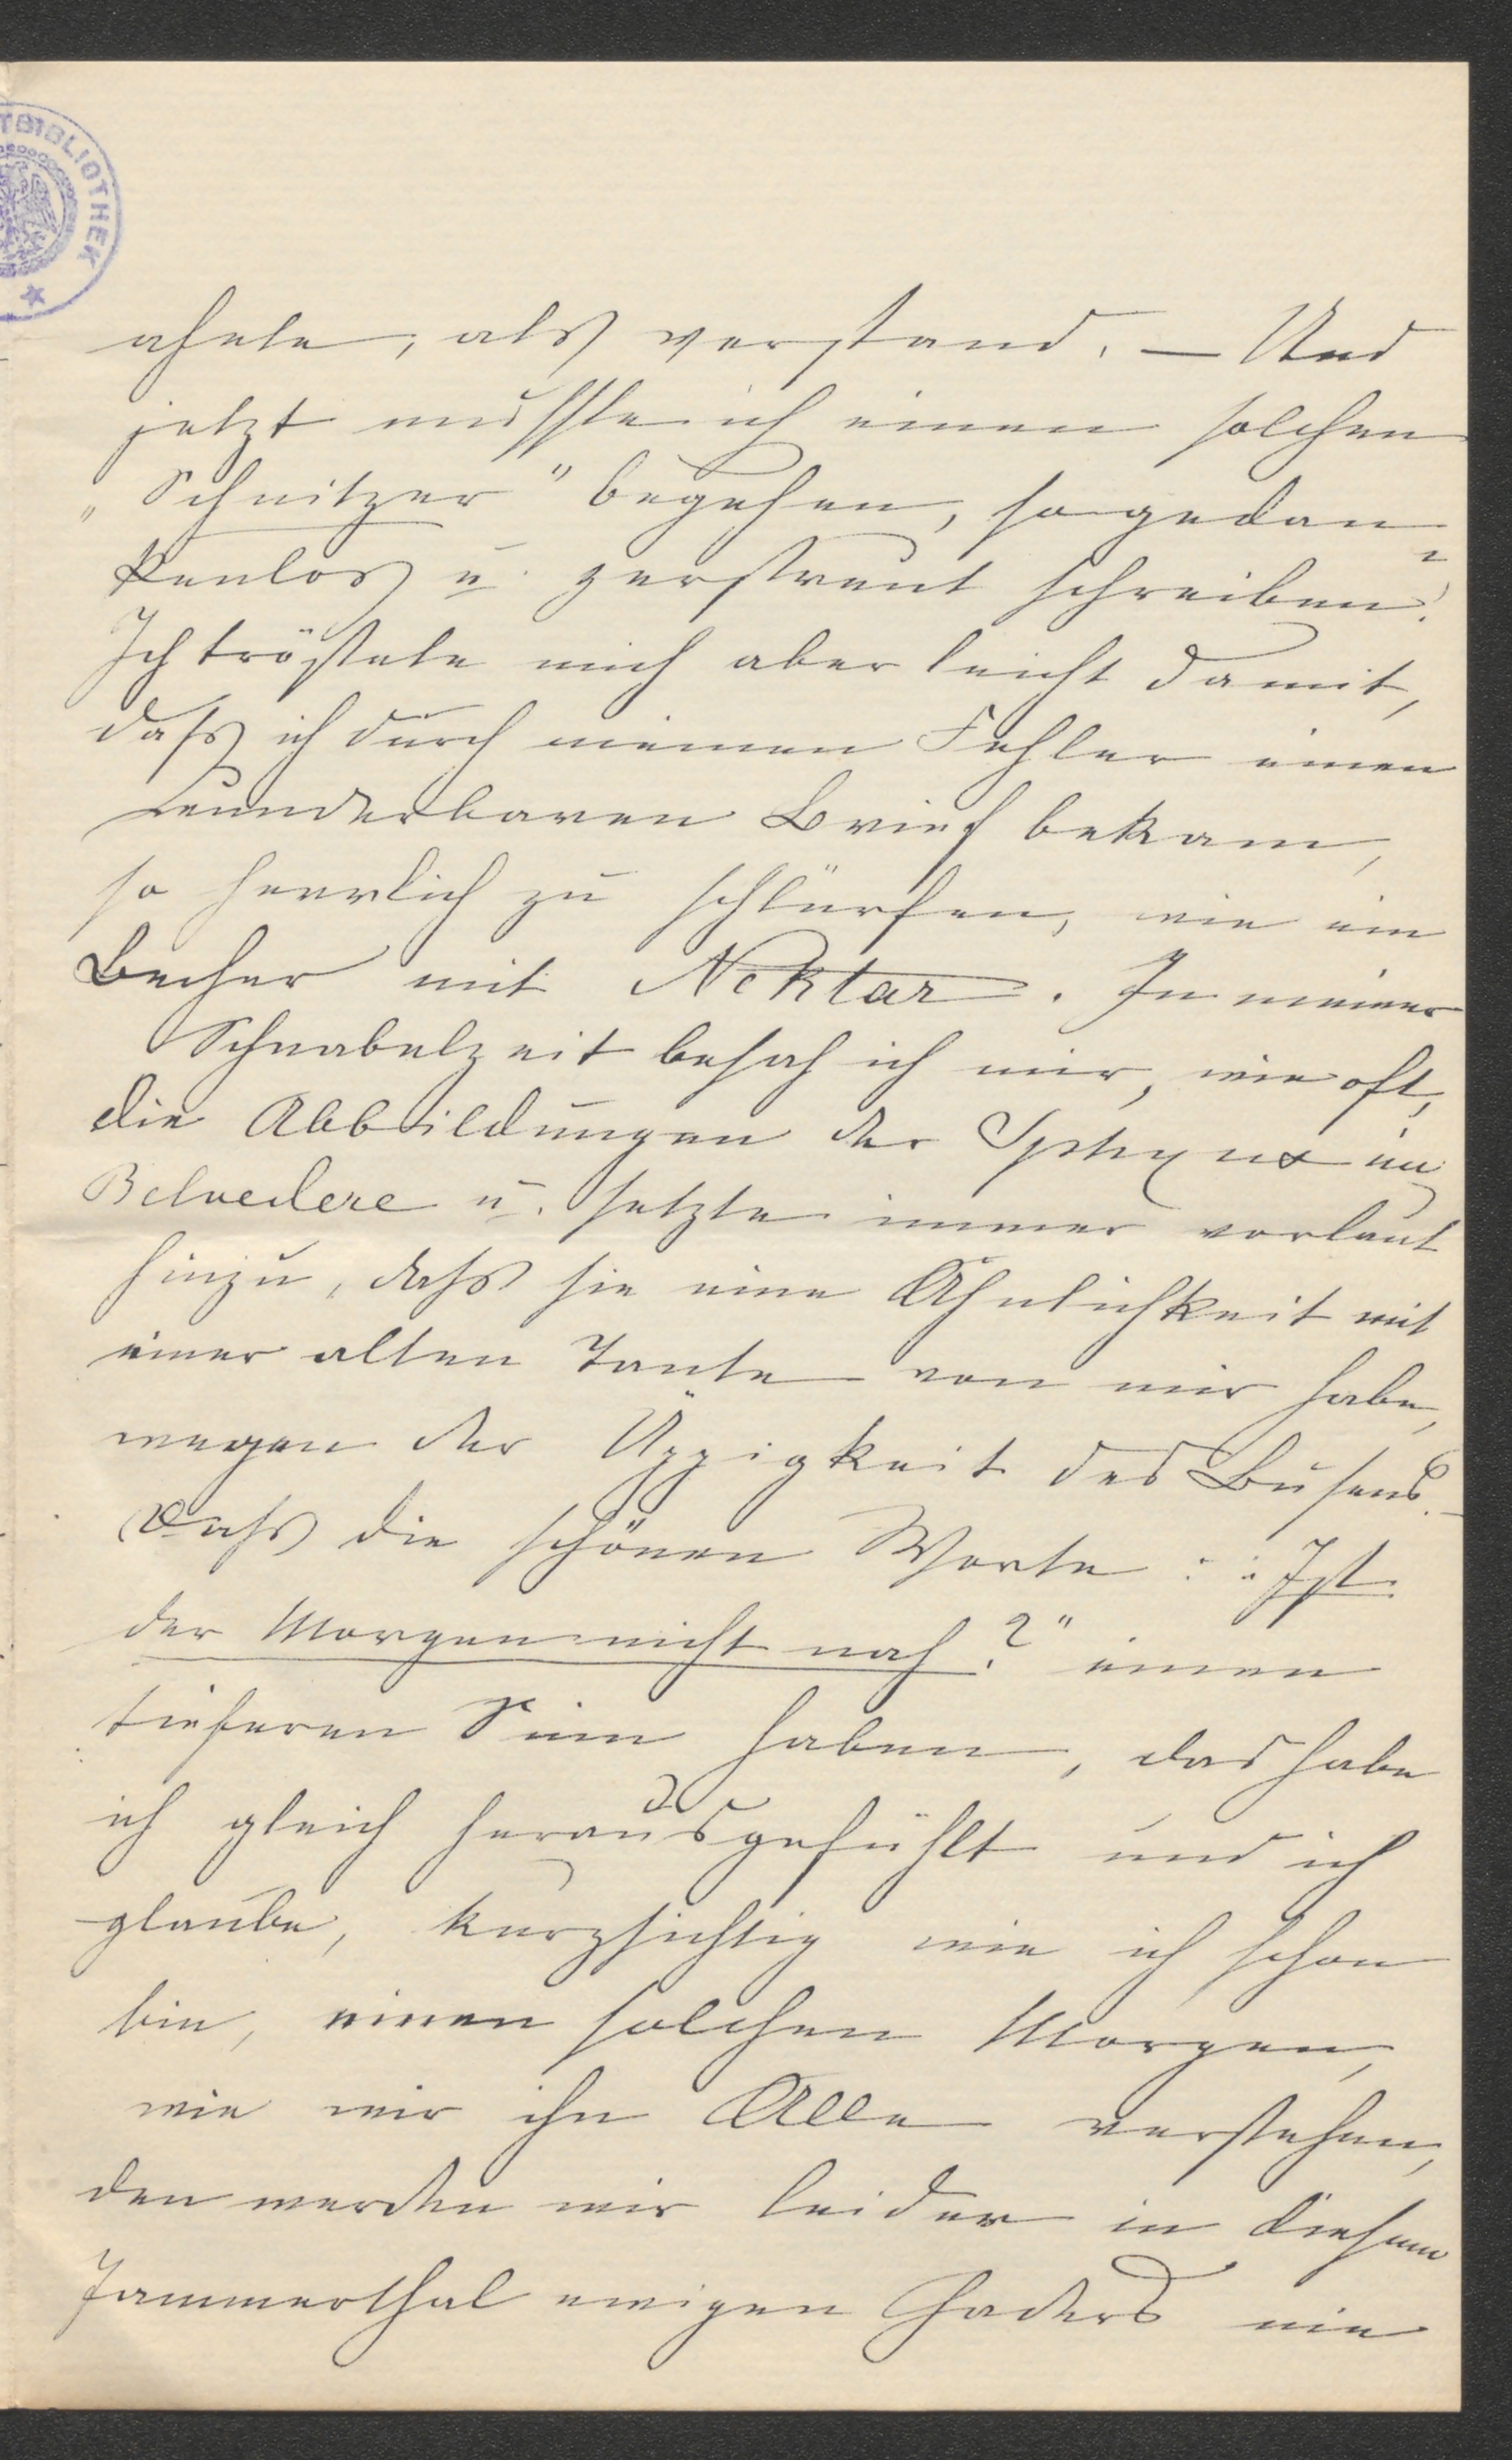 TBIBLIOTHEK
ahnte, als verstand. — Und
jetzt musste ich einen solchen
„Schnitzer" begehen, so gedan-
kenlos u. zerstreut schreiben!
Ich tröstete mich aber leicht damit,
dass ich durch meinen Fehler einen
wunderbaren Brief bekam,
so herrlich zu schlürfen, wie ein
Becher mit Nektar. In meiner
Schnabelzeit besah ich mir, wie oft,
die Abbildungen der Sphynx im
Belvedere u. setzte immer vorlaut
hinzu, dass sie eine Ähnlichkeit mit
einer alten Tante von mir habe,
wegen der Üppigkeit des Busens.–
Dass die schönen Worte: „Ist
der Morgen nicht nah?" einen
tieferen Sinn haben, das habe
ich gleich herausgefühlt und ich
glaube, kurzsichtig wie ich schon
bin, einen solchen Morgen,
wie wir ihn Alle verstehen,
den werden wir leider in diesem
Jammerthal ewigen Haders nie